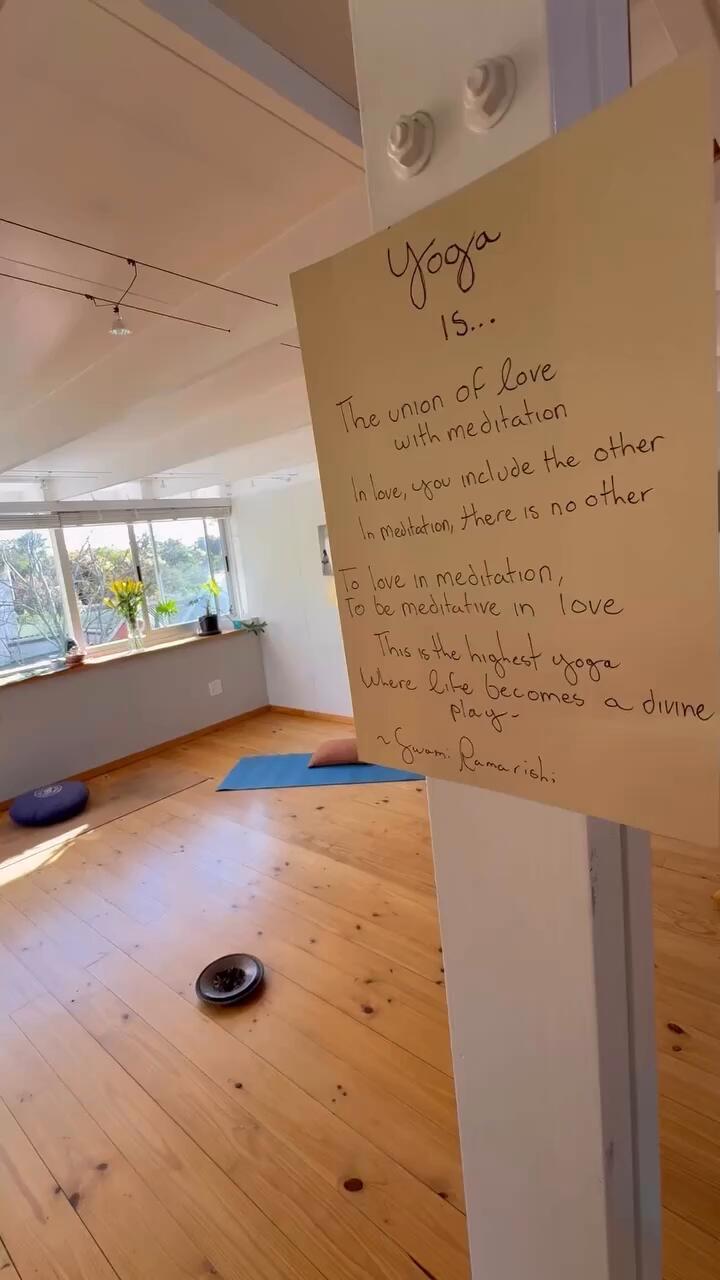 Yoga
is...
The union of love
with meditation
In love, you include the other
In meditation, there is no other
To love in meditation,
To be meditative in love
This is the highest yoga
Where life becomes a divine
play-
~Swami Ramarishi